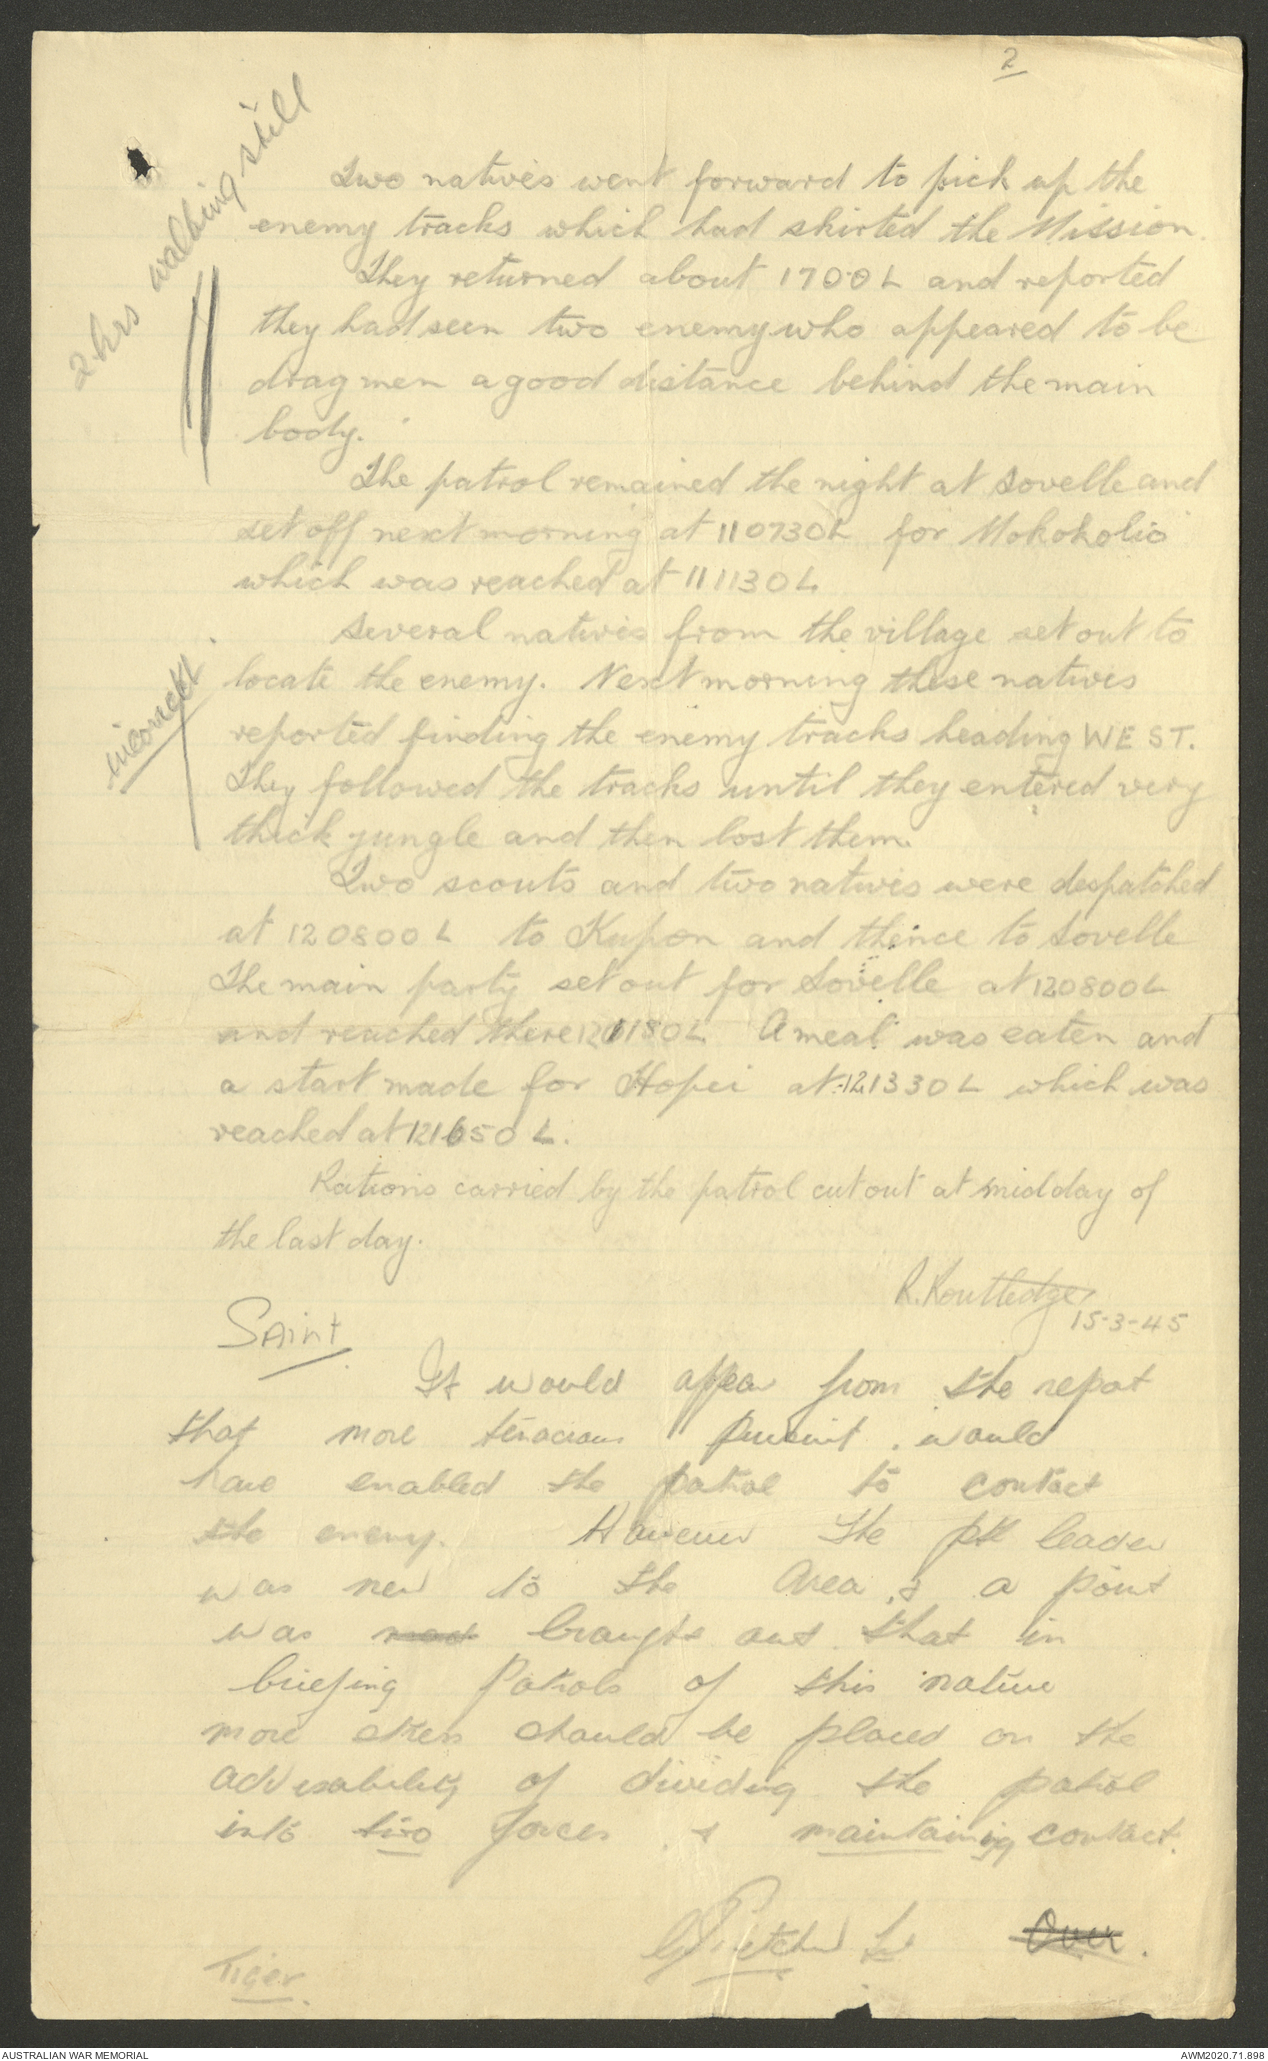 2
2 hrs walking still
Two natives went forward to pick up the
enemy tracks which had skirted the Mission.
They returned about 1700L and reported
they had seen two enemy who appeared to be
dragmen a good distance behind the main
body.
The patrol remained the night at Sovelle and
set off next morning at 110730L for Mokokolio
which was reached at 111130L
Several natives from the village set out to
incorrect
locate the enemy. Next morning these natives
reported finding the enemy tracks heading WEST.
They followed the tracks until they entered very
thick jungle and then lost them.
Two scouts and two natives were despatched
at 120800L to Kupon and thence to Sovelle
The main party set out for Sovelle at 120800L
and reached there 121130L. A meal was eaten and
a start made for Hopei at 121330L which was
reached at 121650L.
Rations carried by the patrol cut out at midday of
the last day.
R. Routledge
15-3-45
Saint
It would appear from the repot
that more tenacious pursuit would
have enabled the patrol to contact
the enemy. However the ptl leader
was new to the area & a point
was brought out that in
briefing Patrols of this nature
more stress should be placed on the
advisability of dividing the patrol
into two forces & maintaining contact.
Lt
Over.
Tiger.
AUSTRALIAN WAR MEMORIAL
AWM2020.71.898